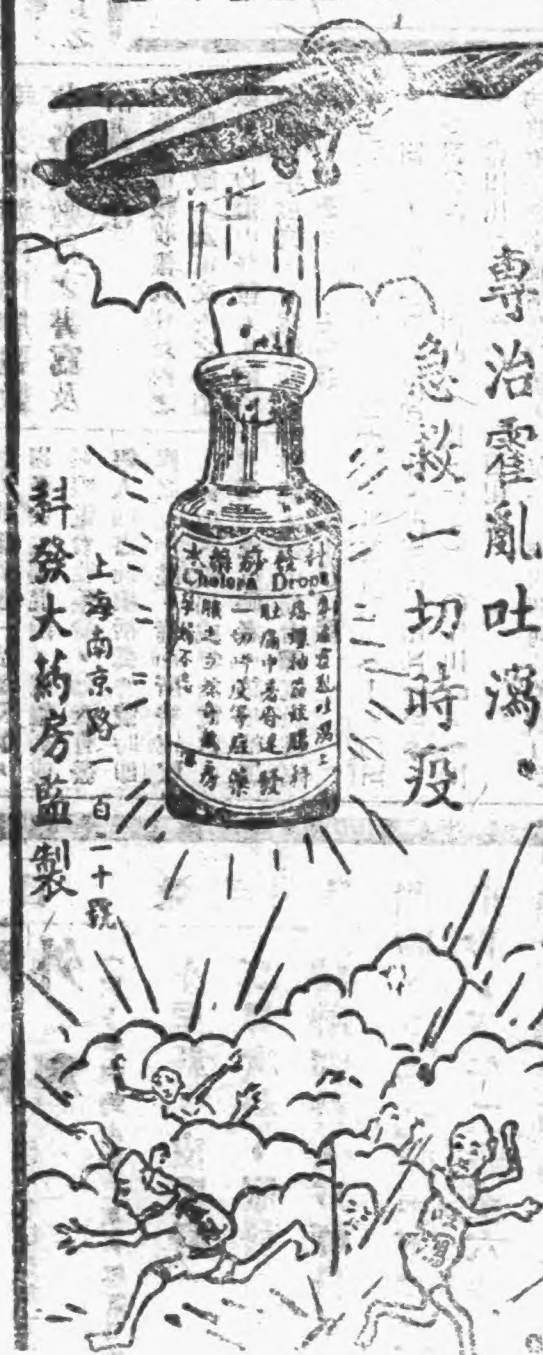 專治霍亂吐瀉
急救一切時疫
科發痧藥水
Cholera Drops
專治霍亂吐瀉
肚痛中暑昏迷
一切時疫等症
上海
科發藥房
上海南京路一百二十號
科發大藥房監製
吐瀉